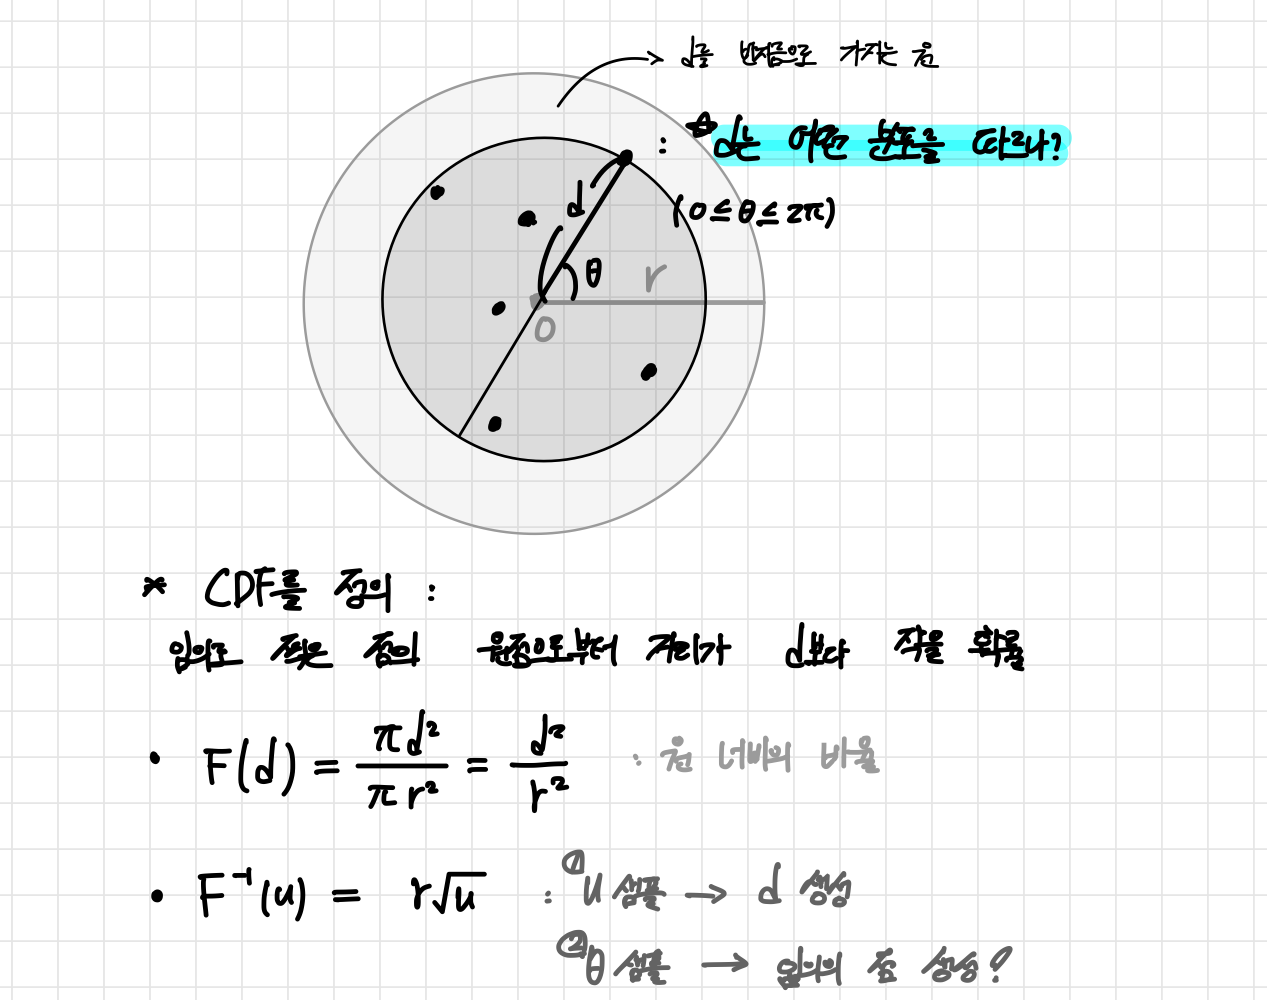 d를 반지름으로 가지는 원
: ☆d는 어떤 분포를 따르나?
d
(0 ≤ θ ≤ 2π)
θ
r
O
* CDF를 정의 :
임의로 찍은 점의 원점으로부터 거리가 d보다 작을 확률
• F(d) = πd²/πr² = d²/r² : 원 너비의 비율
• F⁻¹(u) = r√u : ①u 샘플 → d 생성
②θ 샘플 → 임의의 점 생성?